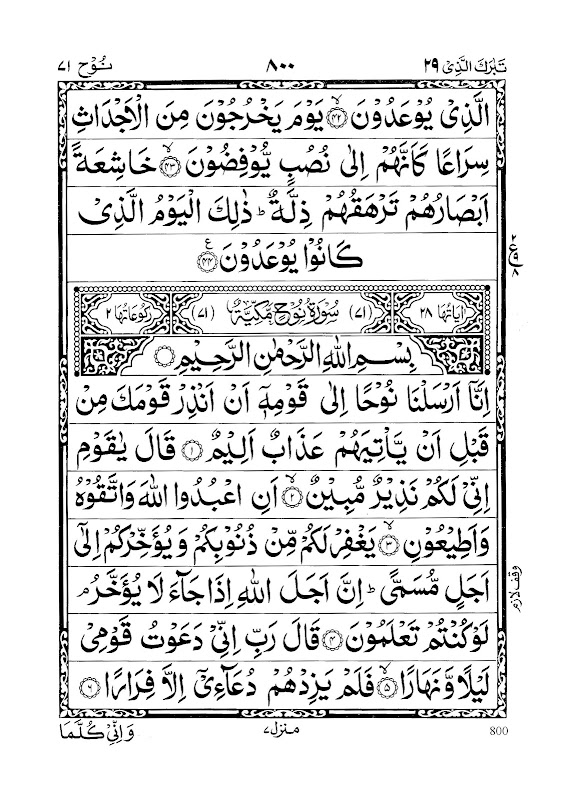 تبٰرك الذی ٢٩ ٨٠٠ نُوْح ٧١
الَّذِیْ یُوْعَدُوْنَ ﴿٤٢﴾ یَوْمَ یَخْرُجُوْنَ مِنَ الْاَجْدَاثِ
سِرَاعًا كَاَنَّهُمْ اِلٰی نُصُبٍ یُّوْفِضُوْنَ ﴿٤٣﴾ خَاشِعَةً
اَبْصَارُهُمْ تَرْهَقُهُمْ ذِلَّةٌ ؕ ذٰلِكَ الْیَوْمُ الَّذِیْ
كَانُوْا یُوْعَدُوْنَ ﴿٤٤﴾
٢ ع ٨
اٰیَاتُهَا ٢٨ (٧١) سُوْرَةُ نُوْحٍ مَّكِّیَّةٌ (٧١) رُكُوْعَاتُهَا ٢
بِسْمِ اللهِ الرَّحْمٰنِ الرَّحِیْمِ
اِنَّاۤ اَرْسَلْنَا نُوْحًا اِلٰی قَوْمِهٖۤ اَنْ اَنْذِرْ قَوْمَكَ مِنْ
قَبْلِ اَنْ یَّاْتِیَهُمْ عَذَابٌ اَلِیْمٌ ﴿١﴾ قَالَ یٰقَوْمِ
اِنِّیْ لَكُمْ نَذِیْرٌ مُّبِیْنٌ ﴿٢﴾ اَنِ اعْبُدُوا اللهَ وَاتَّقُوْهُ
وَاَطِیْعُوْنِ ﴿٣﴾ یَغْفِرْ لَكُمْ مِّنْ ذُنُوْبِكُمْ وَیُؤَخِّرْكُمْ اِلٰۤی
اَجَلٍ مُّسَمًّی ؕ اِنَّ اَجَلَ اللهِ اِذَا جَآءَ لَا یُؤَخَّرُ ۘ
وقف لازم
لَوْ كُنْتُمْ تَعْلَمُوْنَ ﴿٤﴾ قَالَ رَبِّ اِنِّیْ دَعَوْتُ قَوْمِیْ
لَیْلًا وَّنَهَارًا ﴿٥﴾ فَلَمْ یَزِدْهُمْ دُعَآءِیْۤ اِلَّا فِرَارًا ﴿٦﴾
800 منزل ٧ وَاِنِّیْ كُلَّمَا